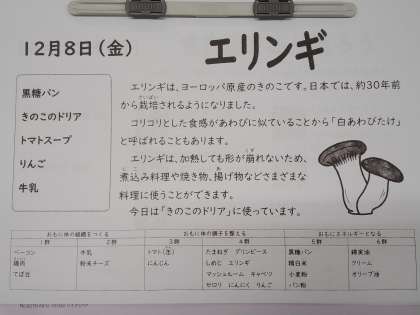 12月8日(金)
エリンギ
黒糖パン
きのこのドリア
トマトスープ
りんご
牛乳
エリンギは、ヨーロッパ原産のきのこです。日本では、約30年前
から栽培されるようになりました。
コリコリとした食感があわびに似ていることから「白あわびたけ」
と呼ばれることもあります。
エリンギは、加熱しても形が崩れないため、
煮込み料理や焼き物、揚げ物などさまざまな
料理に使うことができます。
今日は「きのこのドリア」に使っています。
おもに体の組織をつくる おもに体の調子を整える おもにエネルギーとなる
1群 2群 3群 4群 5群 6群
ベーコン 牛乳 トマト(缶) たまねぎ グリンピース 黒糖パン 綿実油
鶏肉 粉末チーズ にんじん しめじ エリンギ 精白米 クリーム
てぼ豆 マッシュルーム キャベツ 小麦粉 オリーブ油
セロリ にんにく りんご パン粉